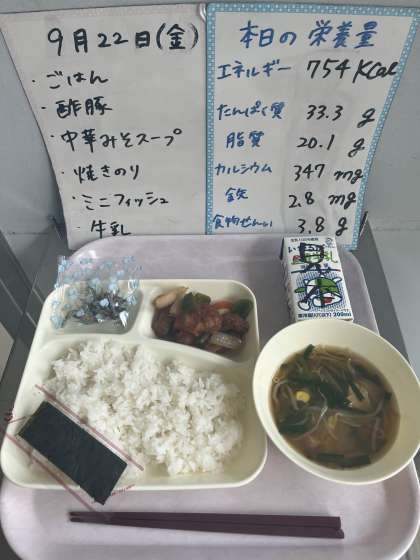 9月22日(金)
・ごはん
・酢豚
・中華みそスープ
・焼きのり
・ミニフィッシュ
・牛乳
本日の栄養量
エネルギー 754 Kcal
たんぱく質 33.3 g
脂質 20.1 g
カルシウム 347 mg
鉄 2.8 mg
食物せんい 3.8 g
200ml